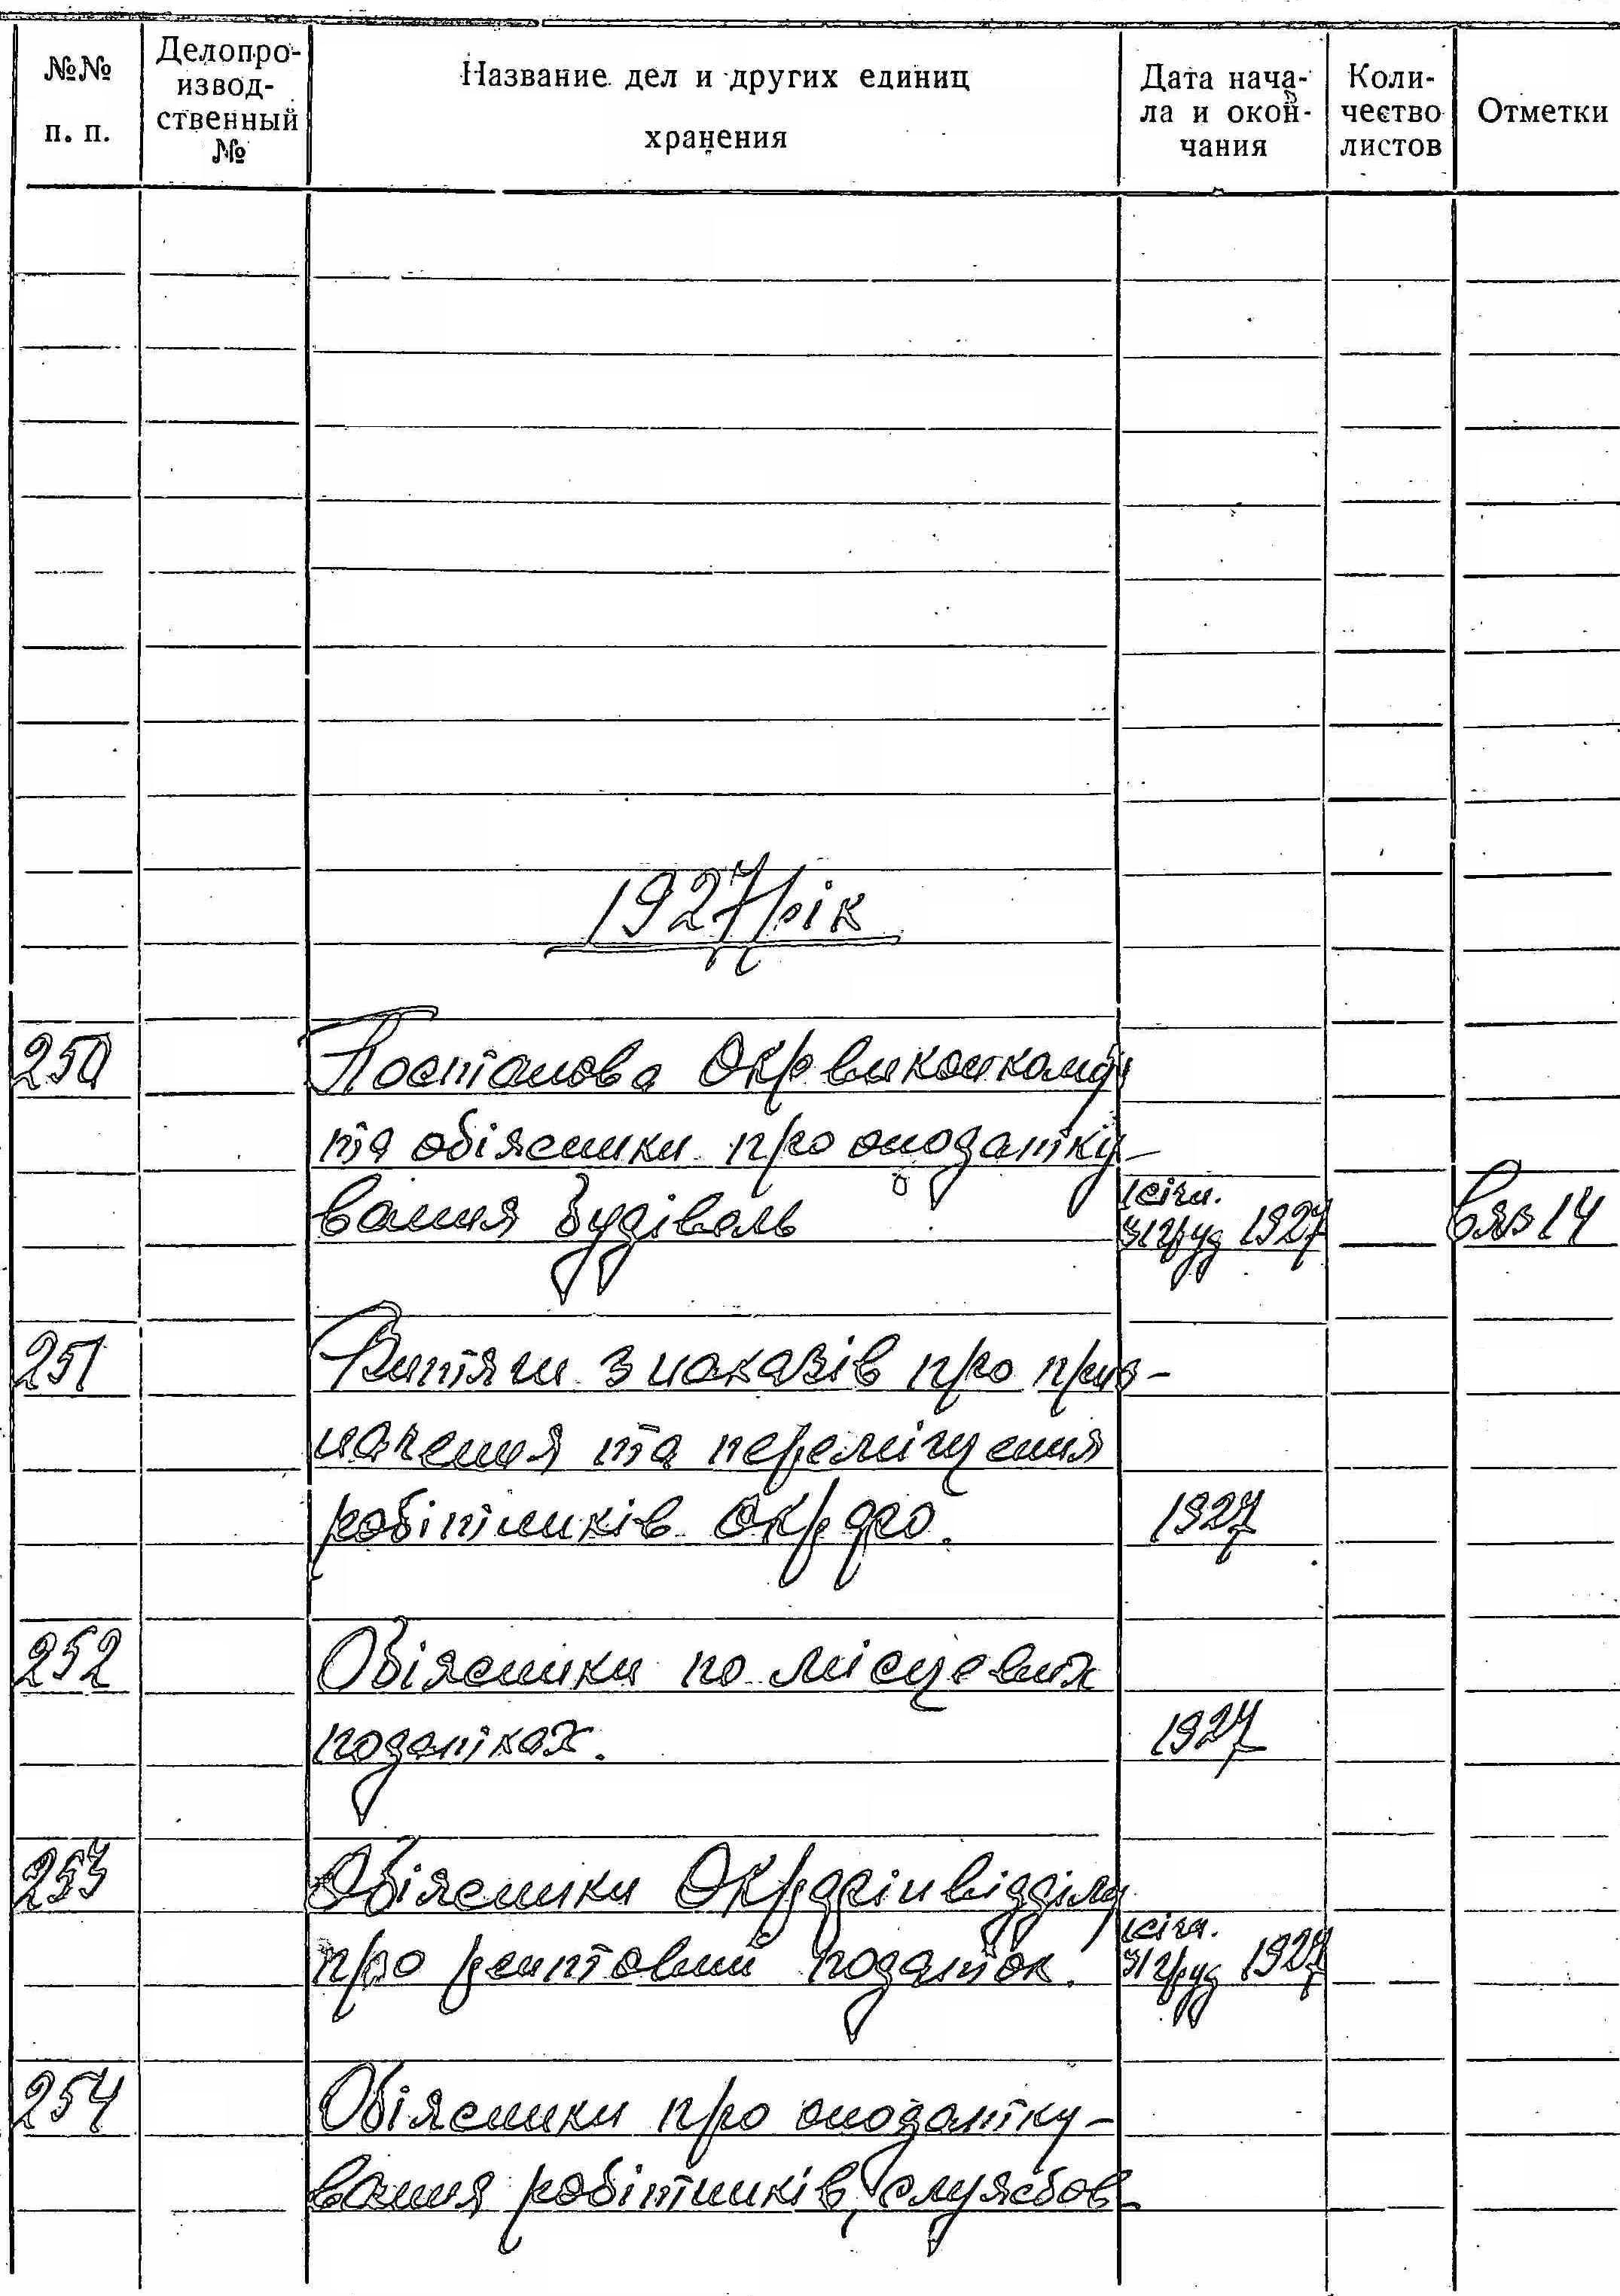 №№ п. п.
Делопро-
извод-
ственный
№
Название дел и других единиц
хранения
Дата нача-
ла и окон-
чания
Коли-
чество
листов
Отметки
1927 рік
250 Постанова Окрвиконкому
та обіясники про оподатку-
вання будівель 1 січн. 31 груд 1927 Вяз 14
251 Витяги з наказів про приз-
начення та переміщення
робітників Окрфо. 1927
252 Обіясники по місцевих
податках. 1927
253 Обіясники Окрфінвідділу
про рентовий податок. 1 січн. 31 груд 1927
254 Обіясники про оподатку-
вання робітників, службов-